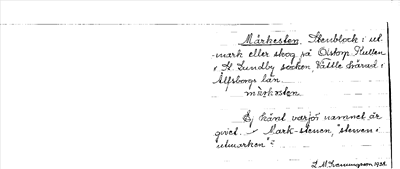 Märkesten. Stenblock i ut-
mark eller skog på Öistorp Kullen
i St. Lundby socken, Vättle härad i
Älfsborgs län.
märkesten.
Ej känd varför namnet är
givet. – Mark-stenen, "stenen i
utmarken"?
1938.